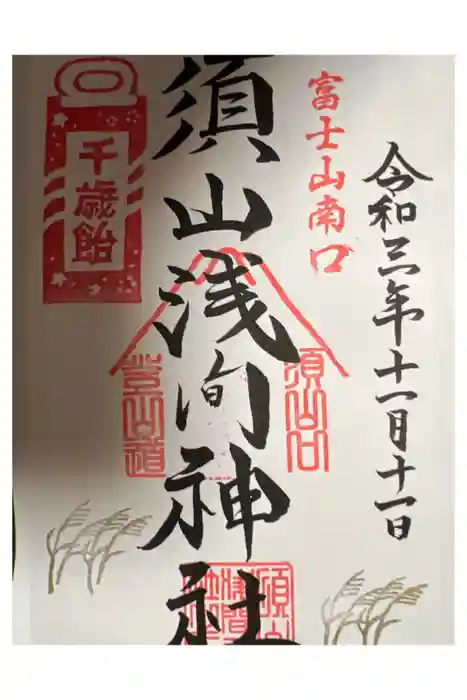 令和三年十一月十一日
富士山南口
須山口
須山浅間神社
登山道
千歳飴